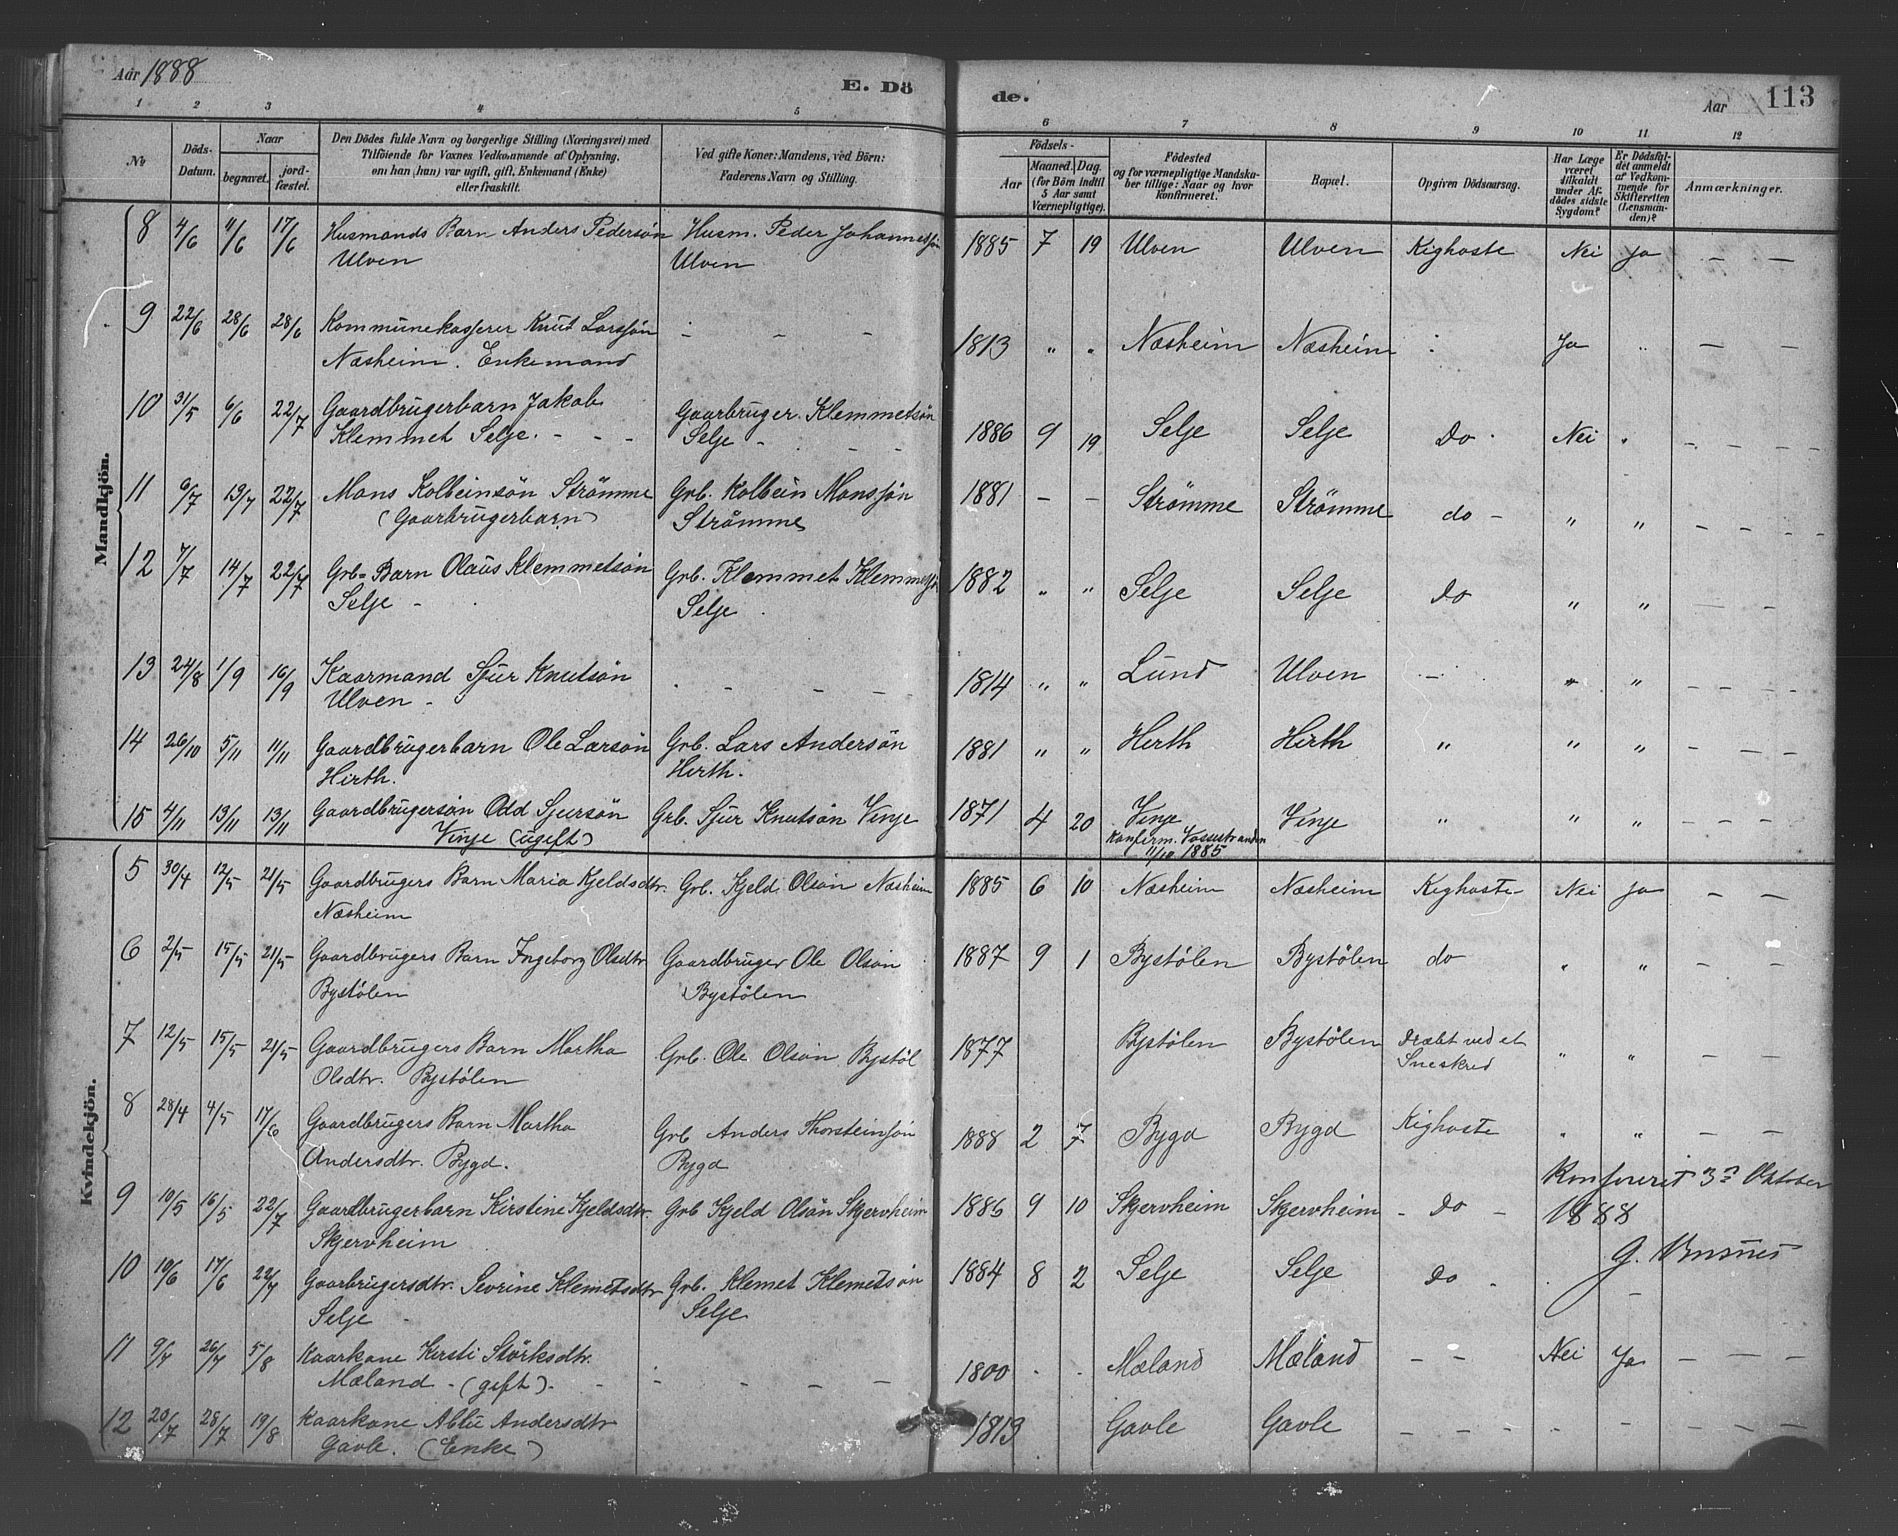 Aar 1888
E. Dö
de.
Aar 113
1 2 3 4 5 6 7 8 9 10 11 12
No
Döds-Datum.
Naar
begravet.
jord-fæstet.
Den Dödes fulde Navn og borgerlige Stilling (Næringsvei) med
Tilföiende for Voxnes Vedkommende af Oplysning,
om han (hun) var ugift, gift, Enkemand (Enke)
eller fraskilt.
Ved gifte Koner: Mandens, ved Börn:
Faderens Navn og Stilling.
Födsels-
Aar
Maaned. Dag.
(for Börn indtil
5 Aar samt
Værnepligtige).
Födested
og for værnepligtige Mandska-
ber tillige: Naar og hvor
konfirmeret.
Bopæl.
Opgiven Dödsaarsag.
Har Læge
været
tilkaldt
under Af-
dödes sidste
Sygdom?
Er Dödsfal-
det anmeldt
af Vedkom-
mende for
Skifteretten
(Lensman-
den)?
Anmærkninger.
Mandkjön.
8 4/6 11/6 17/6 Husmands Barn Anders Pedersön Husm. Peder Johannesjön 1885 7 19 Ulven Ulven Kighoste Nei Ja — —
Ulven Ulven
9 22/6 28/6 28/6 Kommunekasserer Knut Larssön - - - 1813 " " Næsheim Næsheim Ja " — —
Næsheim. Enkemand
10 31/5 6/6 22/7 Gaardbrugerbarn Jakob Gaarbruger. Klemmetsön 1886 9 19 Selje Selje Do Nei "
Klemmet Selje. - - - Selje -
11 6/7 13/7 22/7 Mons Kolbeinsön Strömme Grb. Kolbein Monsjön 1881 - - Strömme Strömme do - " "
(Gaarbrugerbarn) Strömme
12 7/7 14/7 22/7 Grb= Barn Olaus Klemmetsön Grb. Klemmet Klemmetsjön 1882 " " Selje Selje do " "
Selje - Selje
13 24/8 1/9 16/9 Kaarmand Sjur Knutsön - - - 1814 " " Lund Ulven - " "
Ulven -
14 26/10 5/11 11/11 Gaardbrugerbarn Ole Larsön Grb. Lars Andersön 1881 " " Hirth Hirth " " "
Hirth. Hirth.
15 4/11 13/11 13/11 Gaardbrugersön Odd Sjursön Grb. Sjur Knutsön Vinje 1871 4 20 Vinje Vinje " " "
Vinje (ugift) Konfirm. Vossestranden
11/10 1885
Kvindekjön.
5 30/4 12/5 21/5 Gaardbrugers Barn Maria Kjeldsdtr. Grb. Kjeld Olsön Næsheim 1885 6 10 Næsheim Næsheim Kighoste Nei Ja — —
Næsheim
6 2/5 15/5 21/5 Gaardbrugers Barn Ingeborg Olsdtr Gaardbruger Ole Olsön 1887 9 1 Bystölen Bystölen do " "
Bystölen Bystölen
7 12/5 15/5 21/5 Gaardbrugers Barn Martha Grb. Ole Olsön Bystöl 1877 Bystölen Bystölen Dræbt ved et " "
Olsdtr. Bystölen Sneskred
8 28/4 4/5 17/6 Gaardbrugers Barn Martha Grb Anders Thorsteinsjön 1888 2 7 Bygd Bygd Kighoste " "
Andersdtr. Bygd. Bygd
Konfereret 3die Oktober
9 10/5 16/5 22/7 Gaardbrugerbarn Kirstine Kjeldsdtr. Grb Kjeld Olsön Skjervheim 1886 9 10 Skjervheim Skjervheim - Do - 1888
Skjervheim
10 10/6 17/6 22/7 Gaarbrugersdtr. Sevrine Klemetsdtr Grb. Klemet Klemetsön 1884 8 2 Selje Selje Do -
Selje - Selje
11 9/7 26/7 5/8 Kaarkone Kirsti Störksdtr. 1800 - - Mæland Mæland - - Nei Ja
Mæland - (gift).
12 20/7 28/7 19/8 Kaarkone Andersdtr 1813 Gavle Gavle
Gavle. (Enke)